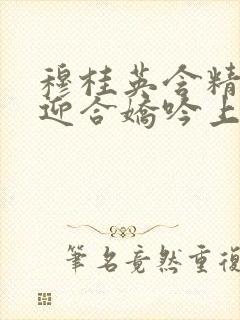 穆桂英含精
迎合嬌吟上
筆名竟然重復